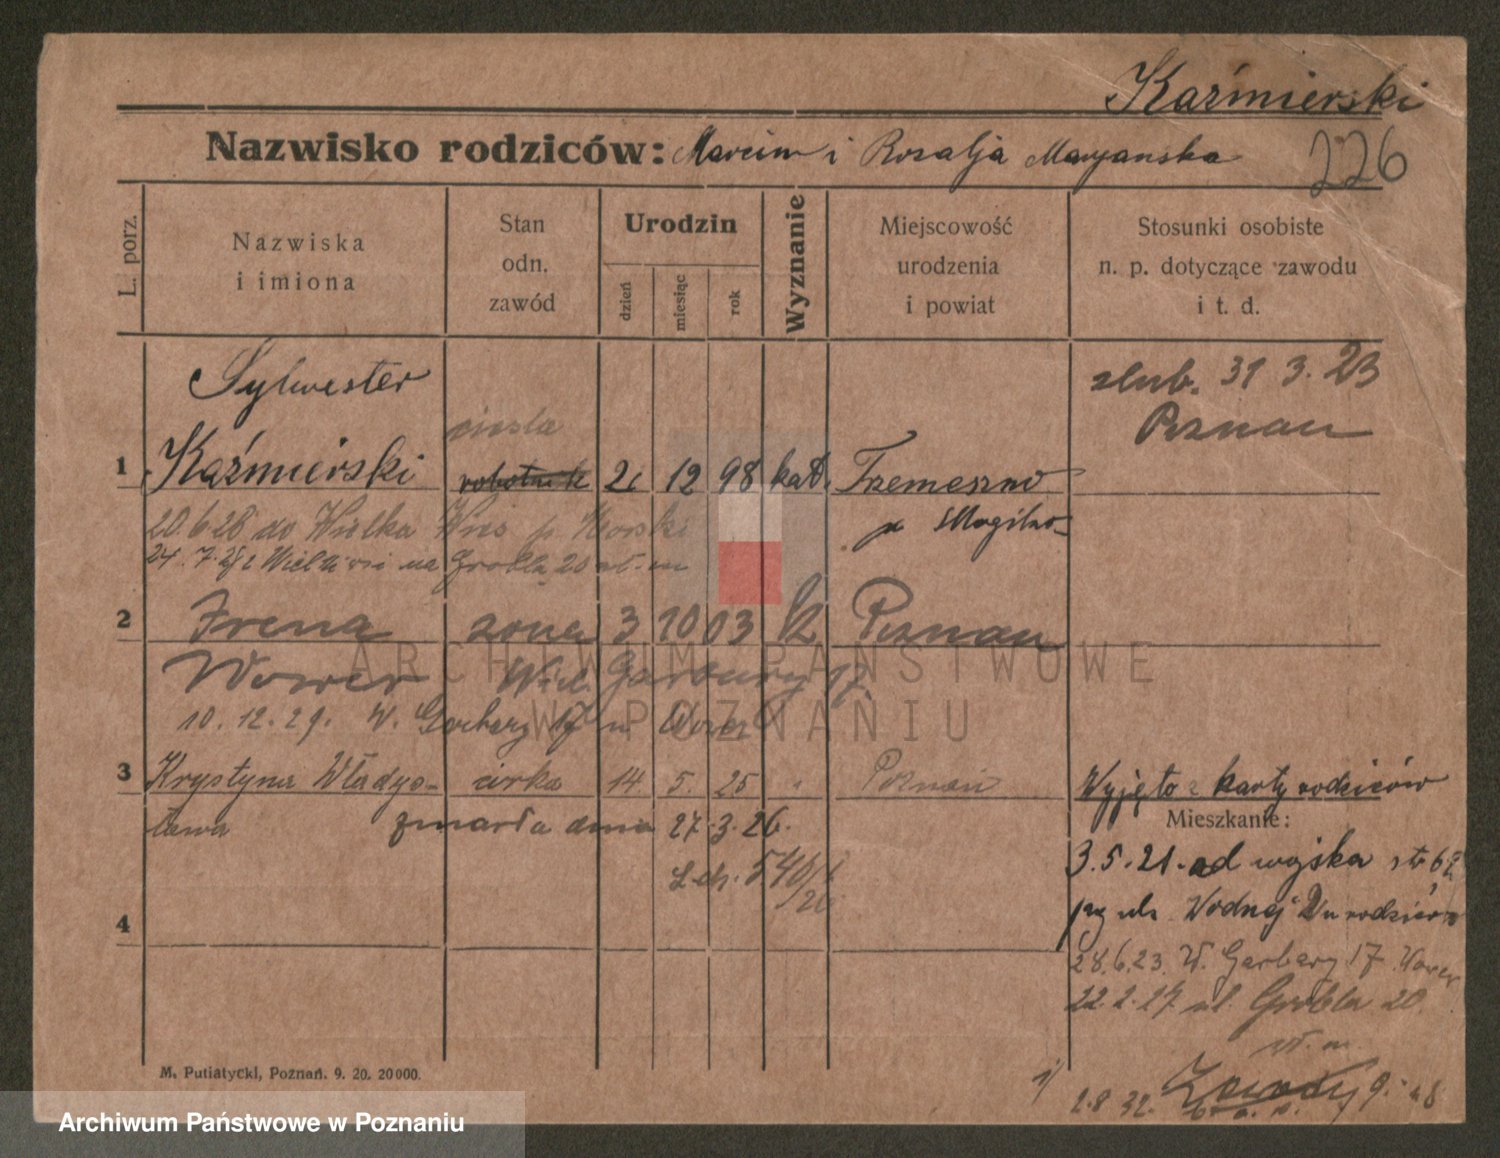 Kaźmierski
Nazwisko rodziców: Marcin i Rozalja Maryańska
226
L. porz.
Nazwiska
i imiona
Stan
odn.
zawód
Urodzin
dzień
miesiąc
rok
Wyznanie
Miejscowość
urodzenia
i powiat
Stosunki osobiste
n. p. dotyczące zawodu
i t. d.
ślub. 31 3. 23
Poznań
1
Sylwester
Kaźmierski
cieśla
robotnik
12 98 kat.
Trzemeszno
p Mogilno
20.6.28 do Wielka Wieś p.
24.7. na Grobla 20
2 Irena żona 3 10 03 k Poznań
Wower W. Garbary 17.
10.12.29. W. Garbary 17 Wower
3 Krystyna Władys- córka 14. 5. 25 Poznań
ława zmarła dnia 27.3.26.
540/
26
4
Wyjęto z karty rodziców
Mieszkanie:
3.5.21. od wojska
przy ul. Wodnej u rodziców
28.6.23 W. Garbary 17 Wower
22.2.27. ul. Grobla 20.
1/
2.8 32.
M. Putiatycki, Poznań. 9. 20. 20000.
ARCHIWUM PAŃSTWOWE
W POZNANIU
Archiwum Państwowe w Poznaniu